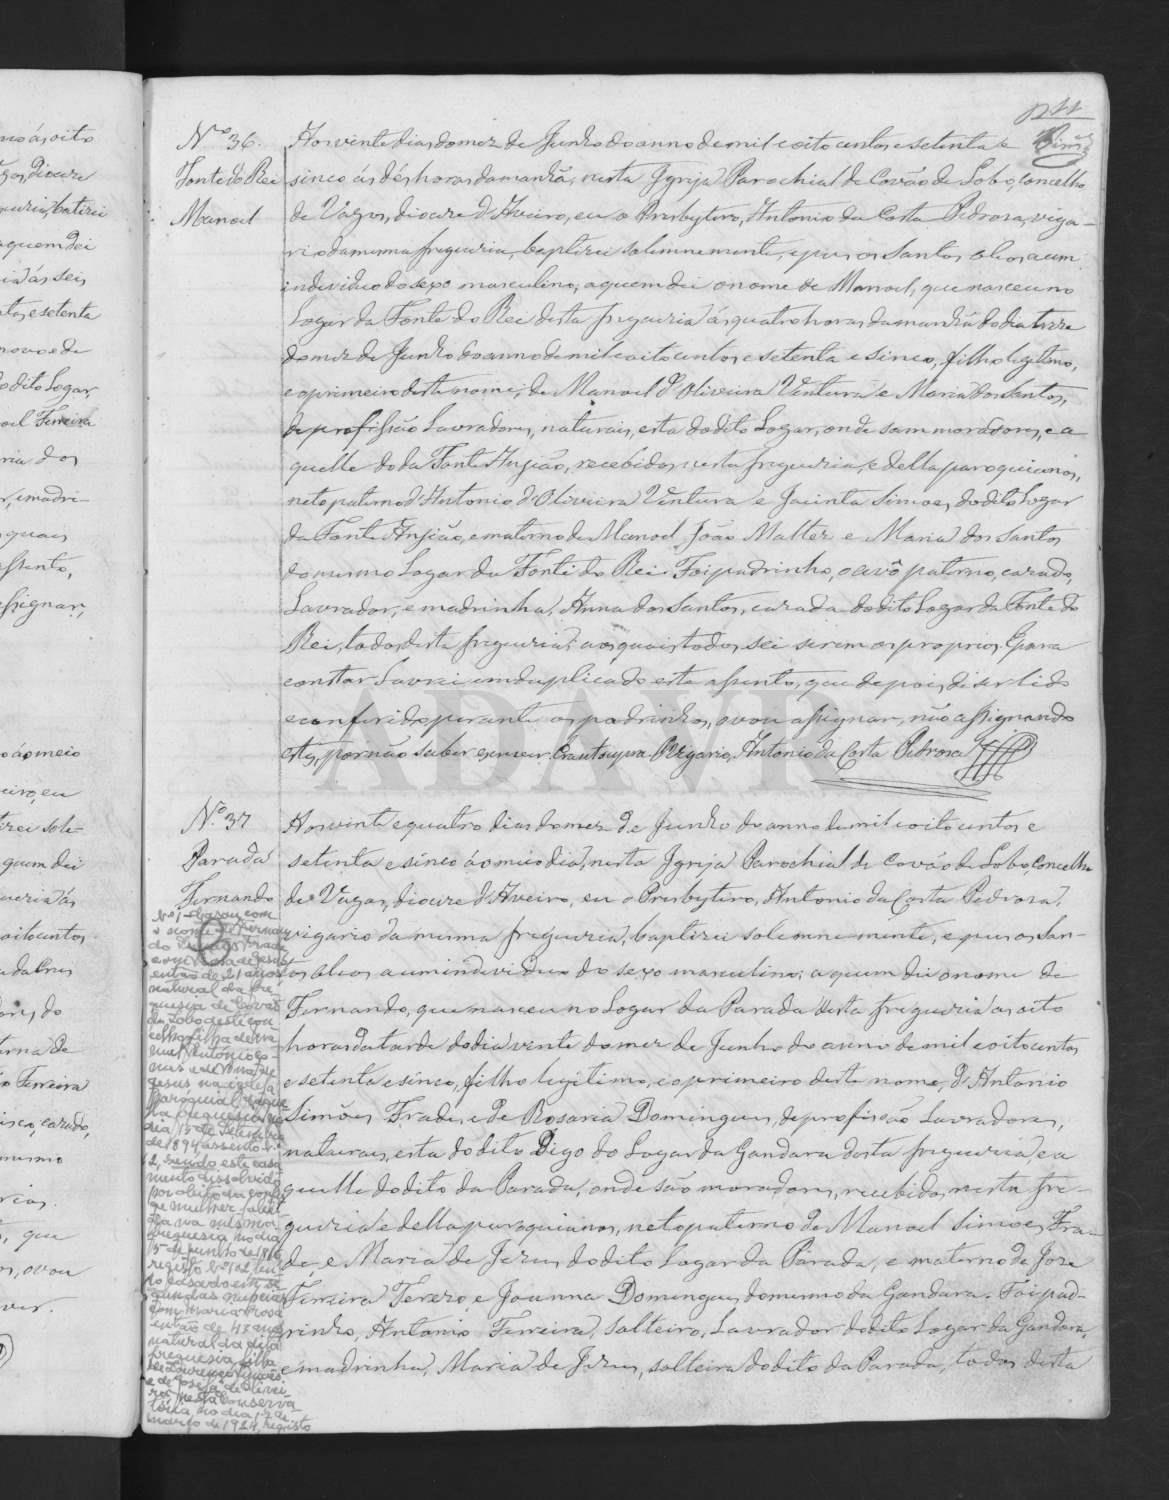 Nº 36.
Fonte do Rei
Manoel
Aos vinte dias do mez de Junho do anno de mil e oito centos e setenta e
sinco ás dés horas da manhã, nesta Igreja Parochial de Covão de Lobo, concelho
de Vagos, diocese d'Aveiro, eu o Presbytero, Antonio da Costa Pedrosa, viga-
rio da mesma freguezia, baptizei solemnemente, e pus os Santos oleos a um
individuo do sexo masculino, a quem dei o nome de Manoel, que nasceu no
Logar da Fonte do Rei desta freguezia ás quatro horas da manhã do dia treze
do mez de Junho do anno de mil e oito centos e setenta e sinco, filho legitimo,
e o primeiro deste nome, de Manoel d'Oliveira Ventura e Maria dos Santos,
de profissão Lavradores, naturais, esta do dito Logar, onde sam moradores, e a
quelle do da Fonte Anjião, recebidos nesta freguezia, e della paroquianos,
neto paterno d'Antonio d'Oliveira Ventura e Jacinta Simoes, do dito Logar
da Fonte Anjião, e materno de Manoel João Malter e Maria dos Santos
do mesmo Logar da Fonte do Rei. Foi padrinho, o avô paterno, cazado,
Lavrador, e madrinha, Anna dos Santos, cazada do dito Logar da Fonte do
Rei, todos desta freguezia, aos quais todos sei serem os proprios. E para
constar Lavrei em duplicado este assento, que depois de ser lido
e conferido perante os padrinhos, o vou assignar, não assignando
estes, por não saber escrever. Era ut supra O Vigario, Antonio da Costa Pedrosa
Nº 37
Parada
Fernando
Aos vinte e quatro dias do mez de Junho do anno de mil e oito centos e
setenta e sinco ao meio dia, nesta Igreja Parochial de Covão de Lobo, Concelho
de Vagos, diocese d'Aveiro, eu o Presbytero, Antonio da Costa Pedrosa,
vigario da mesma freguezia, baptizei solemnemente, e pus os San-
tos oleos a um individuo do sexo masculino, a quem dei o nome de
Fernando, que nasceu no Logar da Parada desta freguezia as oito
horas da tarde do dia vinte do mez de Junho do anno de mil e oito centos
e setenta e sinco, filho legitimo, e o primeiro deste nome, d'Antonio
Simões Frade, e de Rosaria Domingues, de profissão Lavradores,
naturais, esta do dito Digo do Logar da Gandara desta freguezia, e a
quelle do dito da Parada, onde são moradores, recebidos nesta fre-
guezia e della paroquianos, neto paterno de Manoel Simoes Fra-
de e Maria de Jezus do dito Logar da Parada, e materno de Joze
Ferreira Terezo e Joanna Domingues do mesmo da Gandara. Foi pad-
rinho, Antonio Ferreira, solteiro, Lavrador do dito Logar da Gandara,
e madrinha, Maria de Jezus, solteira do dito da Parada, todos desta
Nº 1 - Casou com
o nome de Fernan
do Simões Frade
de Jesus
então de 21 anos
natural da fre
guesia de Covão
do Lobo deste con
celho filha de Ma
nuel Antonio
e de
Jesus na igreja
paroquial
da freguesia
dia 15 de Setembro
de 1894 assento nº
12, sendo este casa
mento dissolvido
por obito da conju
ge mulher, falec
da na mesma
freguesia no dia
15 de Junho de 1916
registo nº 102
casado em se
gundas nupcias
com Maria Rosa
então de 43 anos
natural da dita
freguesia, filha
de Lourenço
e de Josefa de Olivei
ra, nesta Conserva
tória, no dia 12 de
março de 1924, registo
ADAVR